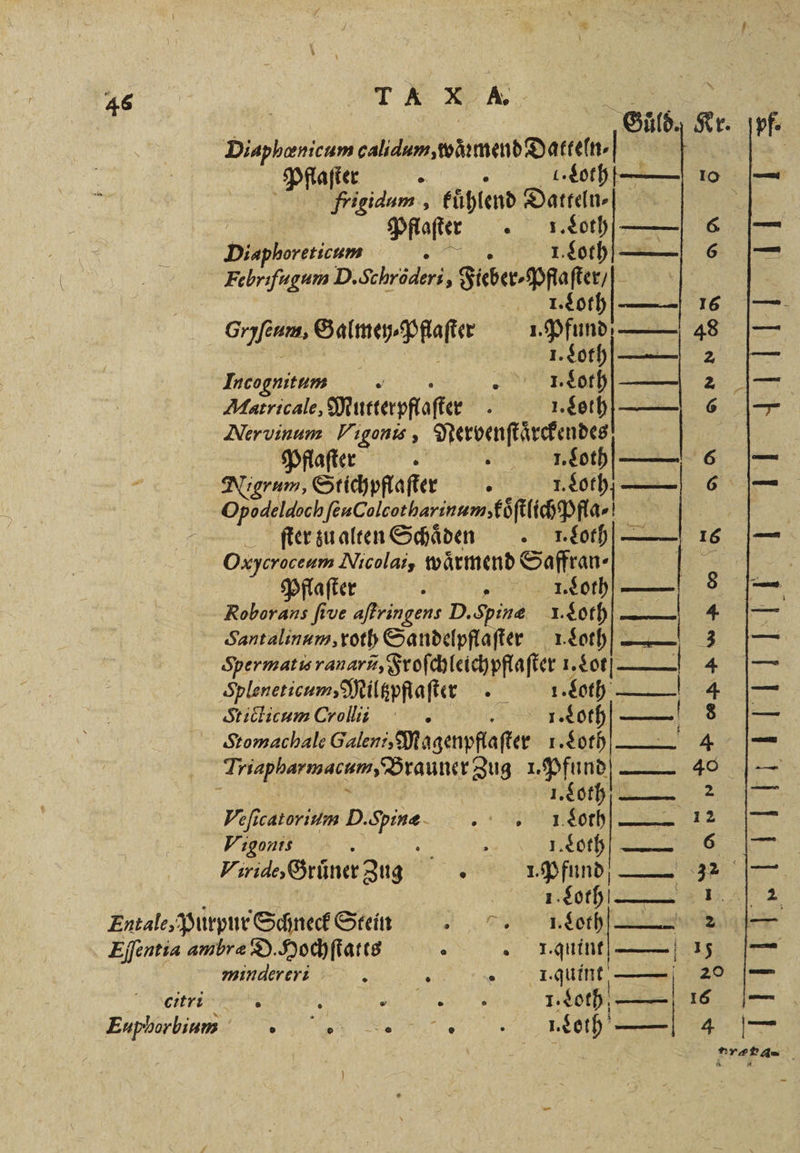 46 TAXA.
Gůld. Kr. pf.
Diaphœnicum calidum, wärmend Datteln-
Pflaster . . 1.Loth —— 10 —
frigidum, kühlend Datteln-
Pflaster . 1.Loth —— 6 —
Diaphoreticum . . 1.Loth —— 6 —
Febrifugum D.Schröderi, Fieber-Pflaster/
1.Loth —— 16 —
Gryseum, Galmey-Pflaster 1.Pfund —— 48 —
1.Loth —— 2 —
Incognitum . . . 1.Loth —— 2 —
Matricale, Mutterpflaster . 1.Loth —— 6 —
Nervinum Vigonis, Nervenstärckendes
Pflaster . . 1.Loth —— 6 —
Nigrum, Stichpflaster . 1.Loth —— 6 —
Opodeldoch seu Colcotharinum, köstlich Pfla-
ster zu alten Schäden . 1.Loth —— 16 —
Oxycroceum Nicolai, wärmend Saffran-
Pflaster . . 1.Loth —— 8 —
Roborans sive astringens D.Spinæ 1.Loth —— 4 —
Santalinum, roth Sandelpflaster 1.Loth —— 3 —
Spermatis ranarũ, Froschleichpflaster 1.Lot —— 4 —
Spleneticum, Miltzpflaster . 1.Loth —— 4 —
Sticticum Crollii . . 1.Loth —— 8 —
Stomachale Galeni, Magenpflaster 1.Loth —— 4 —
Triapharmacum, Brauner Zug 1.Pfund —— 40 —
1.Loth —— 2 —
Vesicatorium D.Spinæ . . 1 Loth —— 12 —
Vigonis . . . 1.Loth —— 6 —
Viride, Grüner Zug . 1.Pfund —— 32 —
1.Loth —— 1 2
Entale, Purpur Schneck Stein . . 1.Loth —— 2 —
Essentia ambræ D.Hochstatts . . 1.quint —— 15 —
mindereri . . . 1.quint —— 20 —
citri . . . . . 1.Loth —— 16 —
Euphorbium . . . . . 1.Loth —— 4 —